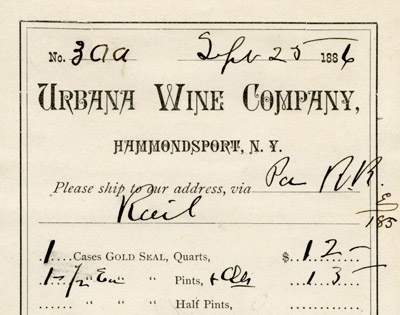 No. 3aa Sept 25 1886
URBANA WINE COMPANY,
HAMMONDSPORT, N. Y.
Please ship to our address, via Pa R.R.
Rail
185
1 Cases GOLD SEAL, Quarts, $ 12 –
1 – " " Pints, 13 –
" " Half Pints,